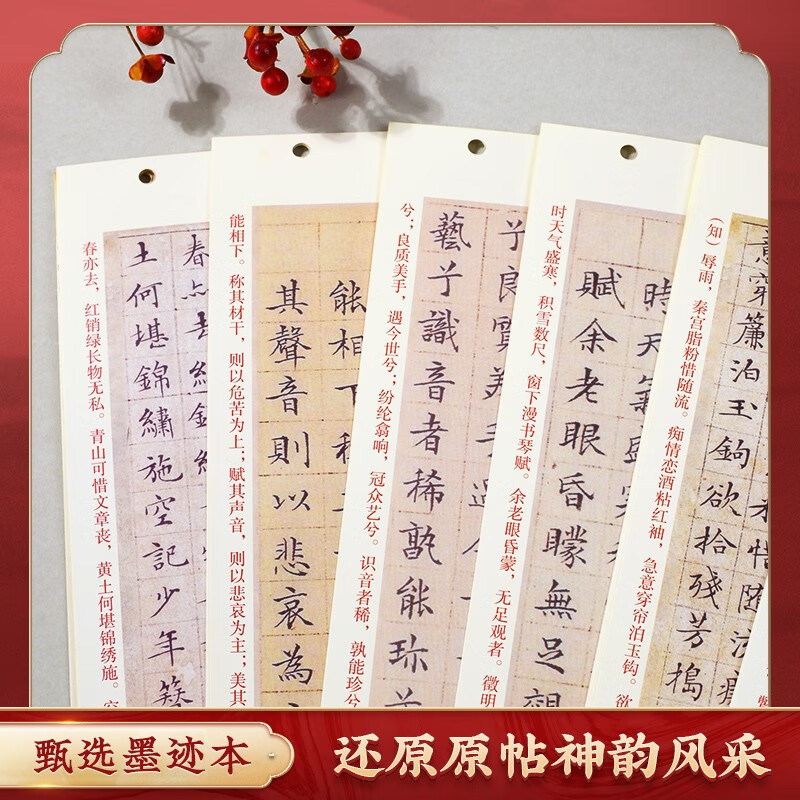 春亦去，红销绿长物无私。青山可惜文章丧，黄土何堪锦绣施。空
土何堪錦繡施空記少年簪
能相下。称其材干，则以危苦为上；赋其声音，则以悲哀为主；美其
能相下
其聲音則以悲哀為
兮；良质美手，遇今世兮；纷纶翕响，冠众艺兮。识音者稀，孰能珍兮
兮良質美手
藝兮識音者稀孰能珎
时天气盛寒，积雪数尺，窗下漫书琴赋。余老眼昏蒙，无足观者。徵明
時天氣盛寒
賦余老眼昏矇無足觀
（知）辱雨，秦宫脂粉惜随流。痴情恋酒粘红袖，急意穿帘泊玉钩。欲
意穿簾泊玉鉤欲拾殘芳搗
甄选墨迹本
还原原帖神韵风采